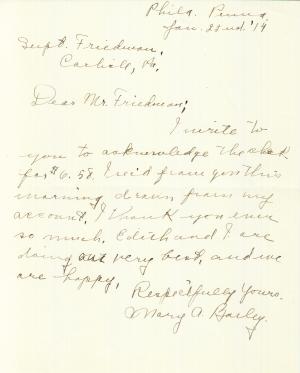 Phila. Penna.
Jan. 22nd. '14
Supt. Friedman,
Carlisle, Pa.
Dear Mr. Friedman;
I write to
you to acknowledge the check
for $6.58. Rec'd from you this
morning drawn from my
account. I thank you ever
so much. Edith and I are
doing our very best, and we
are happy.
Respectfully Yours.
Mary A. Bailey.